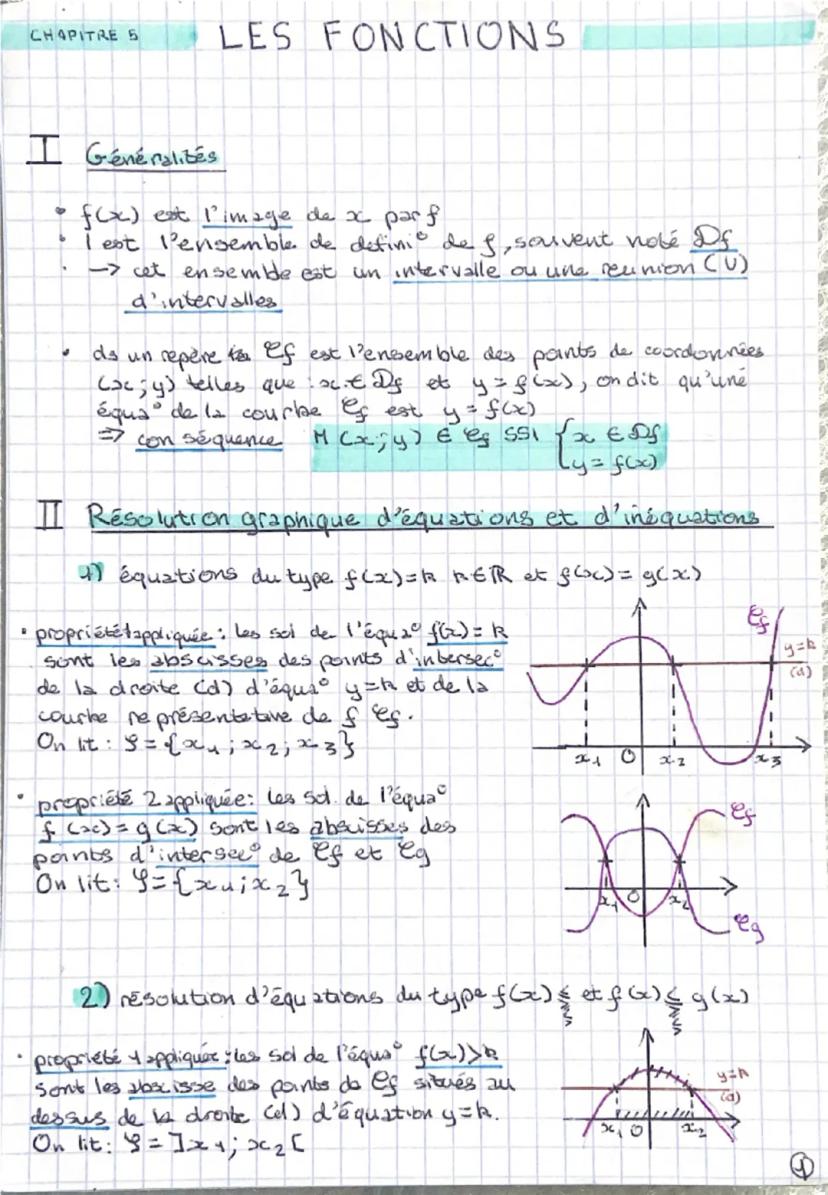 CHAPITRE 5 LES FONCTIONS
I Généralités
• f(x) est l'image de x par f
• I est l'ensemble de défini° de f, souvent noté Df
• → cet ensemble est un intervalle ou une reunion (U)
d'intervalles
• ds un repère Cf est l'ensemble des points de coordonnées
(x;y) telles que : x ∈ Df et y = f(x), on dit qu'une
équa° de la courbe Cf est y = f(x)
⇒ conséquence M(x;y) ∈ Cf SSI { x ∈ Df
y = f(x)
II Résolution graphique d'équations et d'inéquations
1) équations du type f(x)=k k∈ℝ et f(x)=g(x)
• propriété 1 appliquée : les sol de l'équa° f(x)=k
sont les abscisses des points d'intersec°
de la droite (d) d'équa° y=k et de la
courbe représentative de f Cf.
On lit : S={x1;x2;x3}
Cf
y=k
(d)
x1 O x2 x3
• propriété 2 appliquée: les sol. de l'équa°
f(x)=g(x) sont les abscisses des
points d'intersec° de Cf et Cg
On lit: S={x1;x2}
Cf
x1 O x2
Cg
2) résolution d'équations du type f(x) ≤ et f(x) ≤ g(x)
• propriété 1 appliquée : les sol de l'équa° f(x)>k
sont les abscisse des points de Cf situés au
dessus de la droite (d) d'équation y=k.
On lit: S=]x1;x2[
y=k
(d)
x1 O x2
1